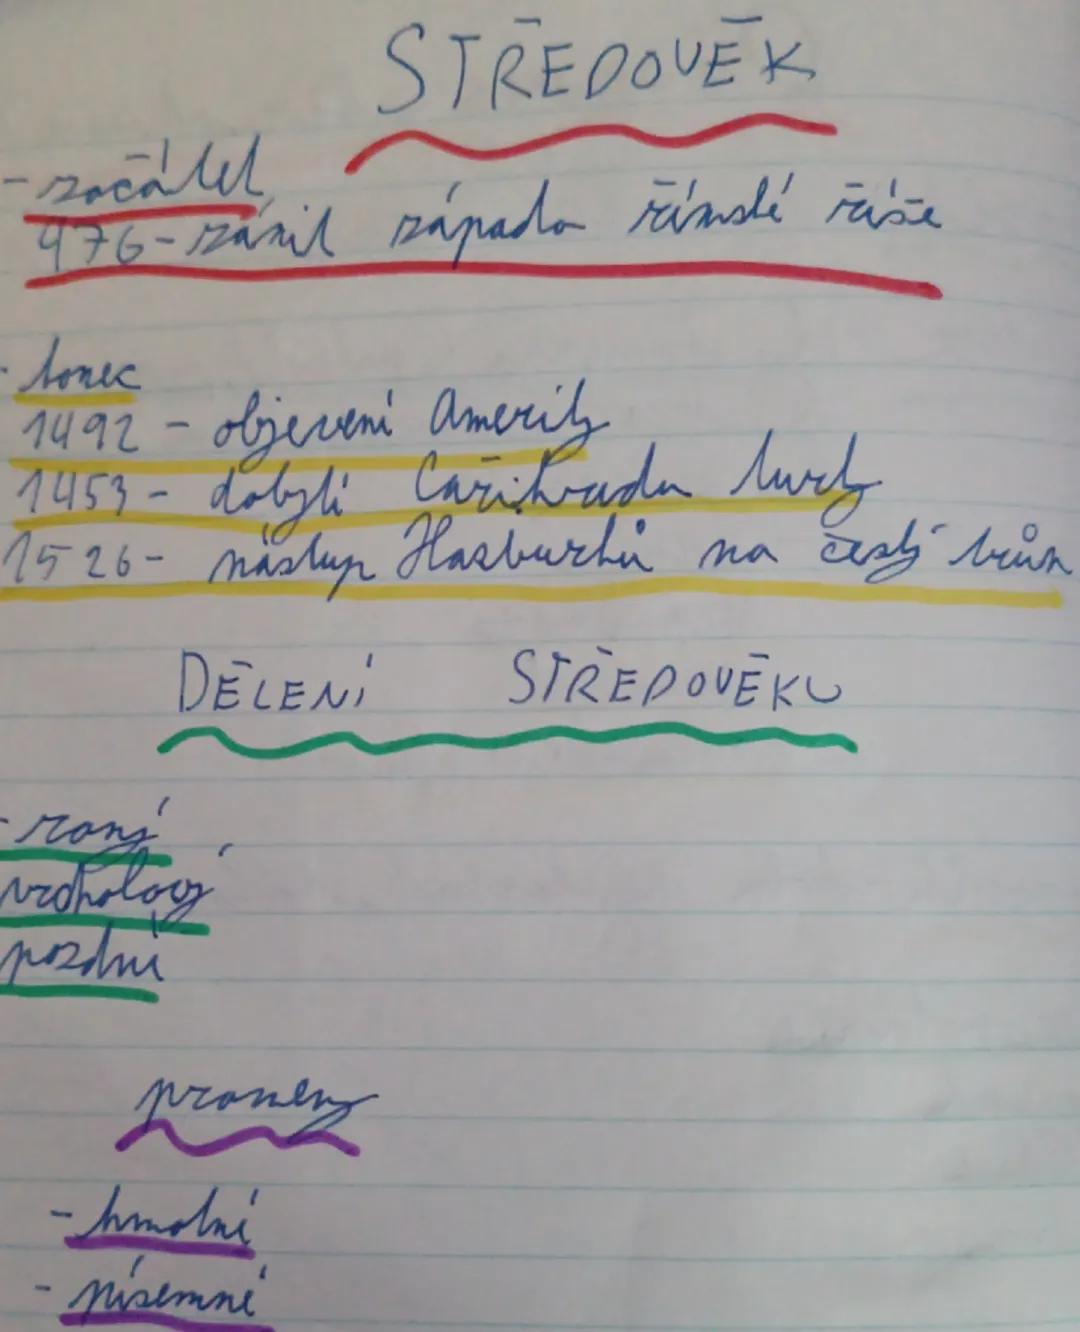 STŘEDOVĚK
- začátek
476 - zánik západo římské říše
- konec
1492 - objevení Ameriky
1453 - dobytí Cařihradu turky
1526 - nástup Hasburků na český trůn
DĚLENÍ STŘEDOVĚKU
- raný
vrcholový
pozdní
prameny
- hmotné
- písemné